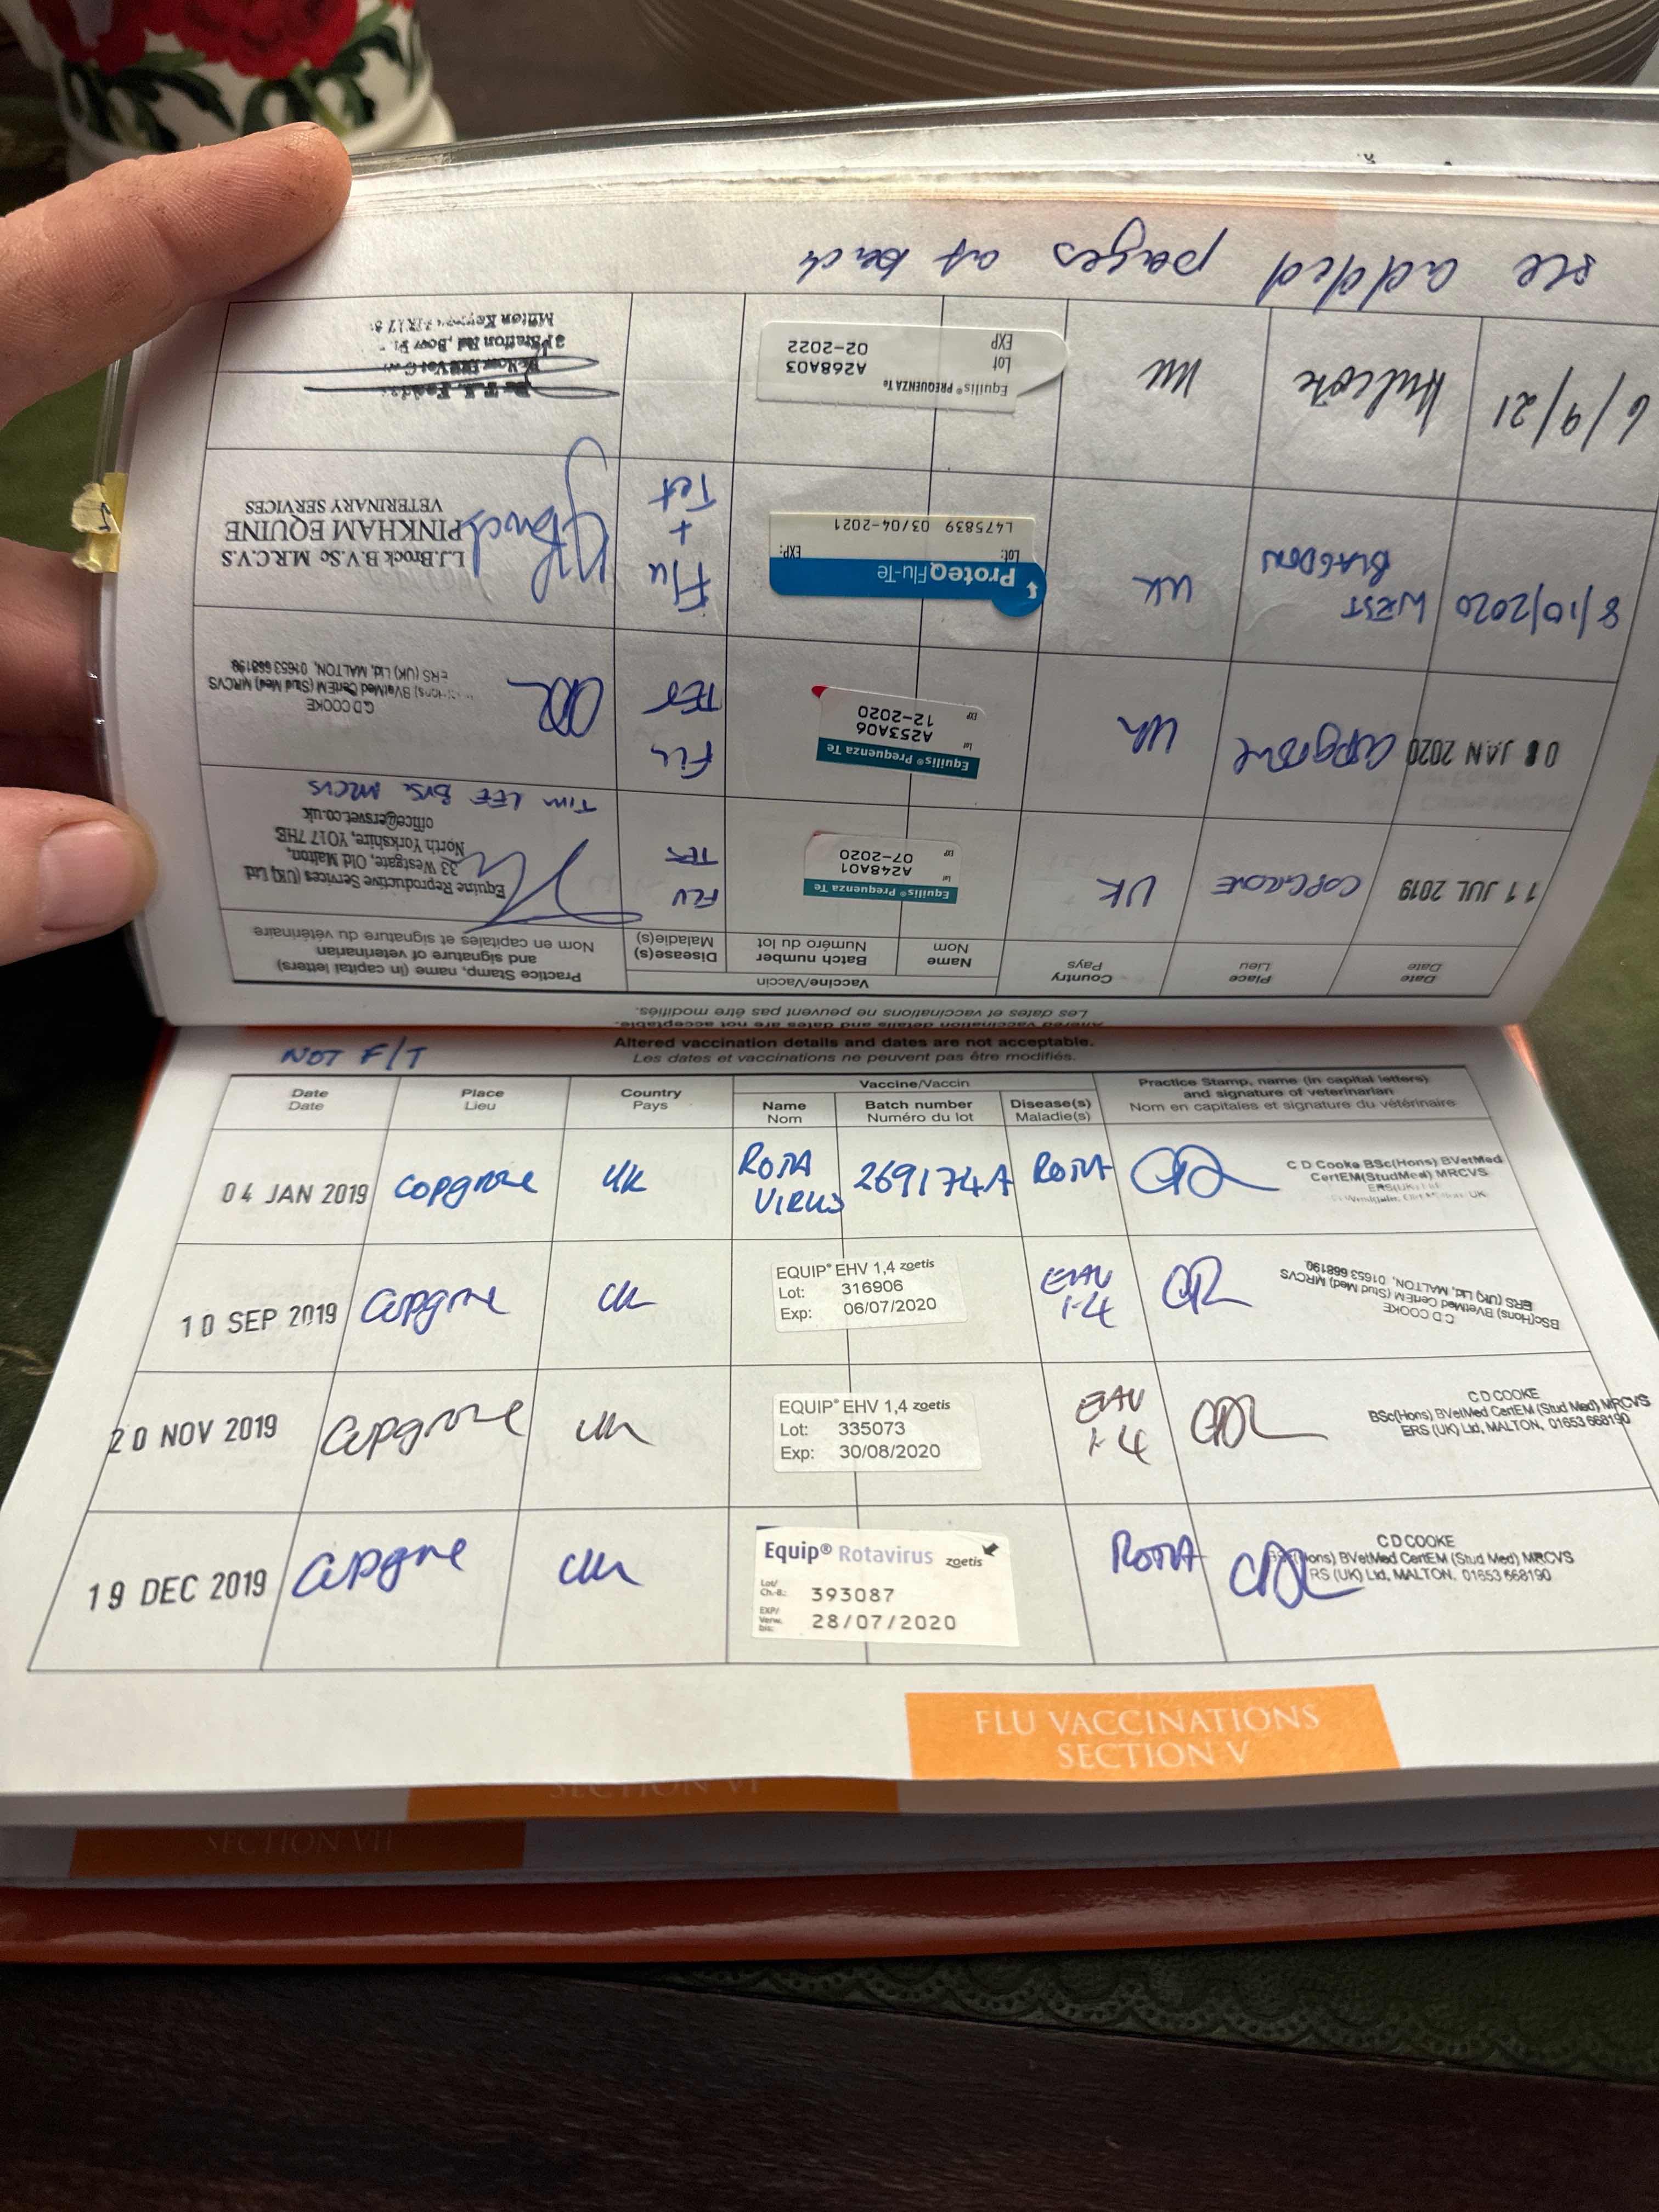 see added pages at back
Altered vaccination details and dates are not acceptable.
Les dates et vaccinations ne peuvent pas être modifiés.
Date
Date
Place
Lieu
Country
Pays
Vaccine/Vaccin
Name
Nom
Batch number
Numéro du lot
Disease(s)
Maladie(s)
Practice Stamp, name (in capital letters)
and signature of veterinarian
Nom en capitales et signature du vétérinaire
11 JUL 2019
COPGROVE
UK
Equilis® Prequenza Te
Lot A248A01
EXP 07-2020
FLU
TET
Equine Reproductive Services (UK) Ltd
33 Westgate, Old Malton,
North Yorkshire, YO17 7HE
office@ersvet.co.uk
TIM LEE BVSc MRCVS
08 JAN 2020
Copgrove
UK
Equilis® Prequenza Te
Lot A253A06
EXP 12-2020
FLU
TET
C D COOKE
BVetMed CertEM (Stud Med) MRCVS
ERS (UK) Ltd, MALTON, 01653 668190
8/10/2020
WEST
BLAGDON
UK
ProteqFlu-Te
Lot: EXP:
L475839 03/04-2021
Flu
+
Tet
L.J.Brock B.V.Sc M.R.C.V.S
PINKHAM EQUINE
VETERINARY SERVICES
6/9/21
Hulcote
UK
Equilis® PREQUENZA Te
Lot A268A03
EXP 02-2022
NOT F/T
Altered vaccination details and dates are not acceptable.
Les dates et vaccinations ne peuvent pas être modifiés.
Date
Date
Place
Lieu
Country
Pays
Vaccine/Vaccin
Name
Nom
Batch number
Numéro du lot
Disease(s)
Maladie(s)
Practice Stamp, name (in capital letters)
and signature of veterinarian
Nom en capitales et signature du vétérinaire
04 JAN 2019
Copgrove
UK
ROTA
VIRUS
269174A
ROTA
C D Cooke BSc(Hons) BVetMed
CertEM(StudMed) MRCVS
10 SEP 2019
Copgrove
UK
EQUIP® EHV 1,4 zoetis
Lot: 316906
Exp: 06/07/2020
EHV
1-4
C D COOKE
BSc(Hons) BVetMed CertEM (Stud Med) MRCVS
ERS (UK) Ltd, MALTON, 01653 668190
20 NOV 2019
Copgrove
UK
EQUIP® EHV 1,4 zoetis
Lot: 335073
Exp: 30/08/2020
EHV
1-4
C D COOKE
BSc(Hons) BVetMed CertEM (Stud Med) MRCVS
ERS (UK) Ltd, MALTON, 01653 668190
19 DEC 2019
Copgrove
UK
Equip® Rotavirus zoetis
Lot/
Ch.-B.: 393087
EXP/
Verw.
bis: 28/07/2020
ROTA
C D COOKE
BVetMed CertEM (Stud Med) MRCVS
RS (UK) Ltd, MALTON, 01653 668190
FLU VACCINATIONS
SECTION V
SECTION VI
SECTION VII